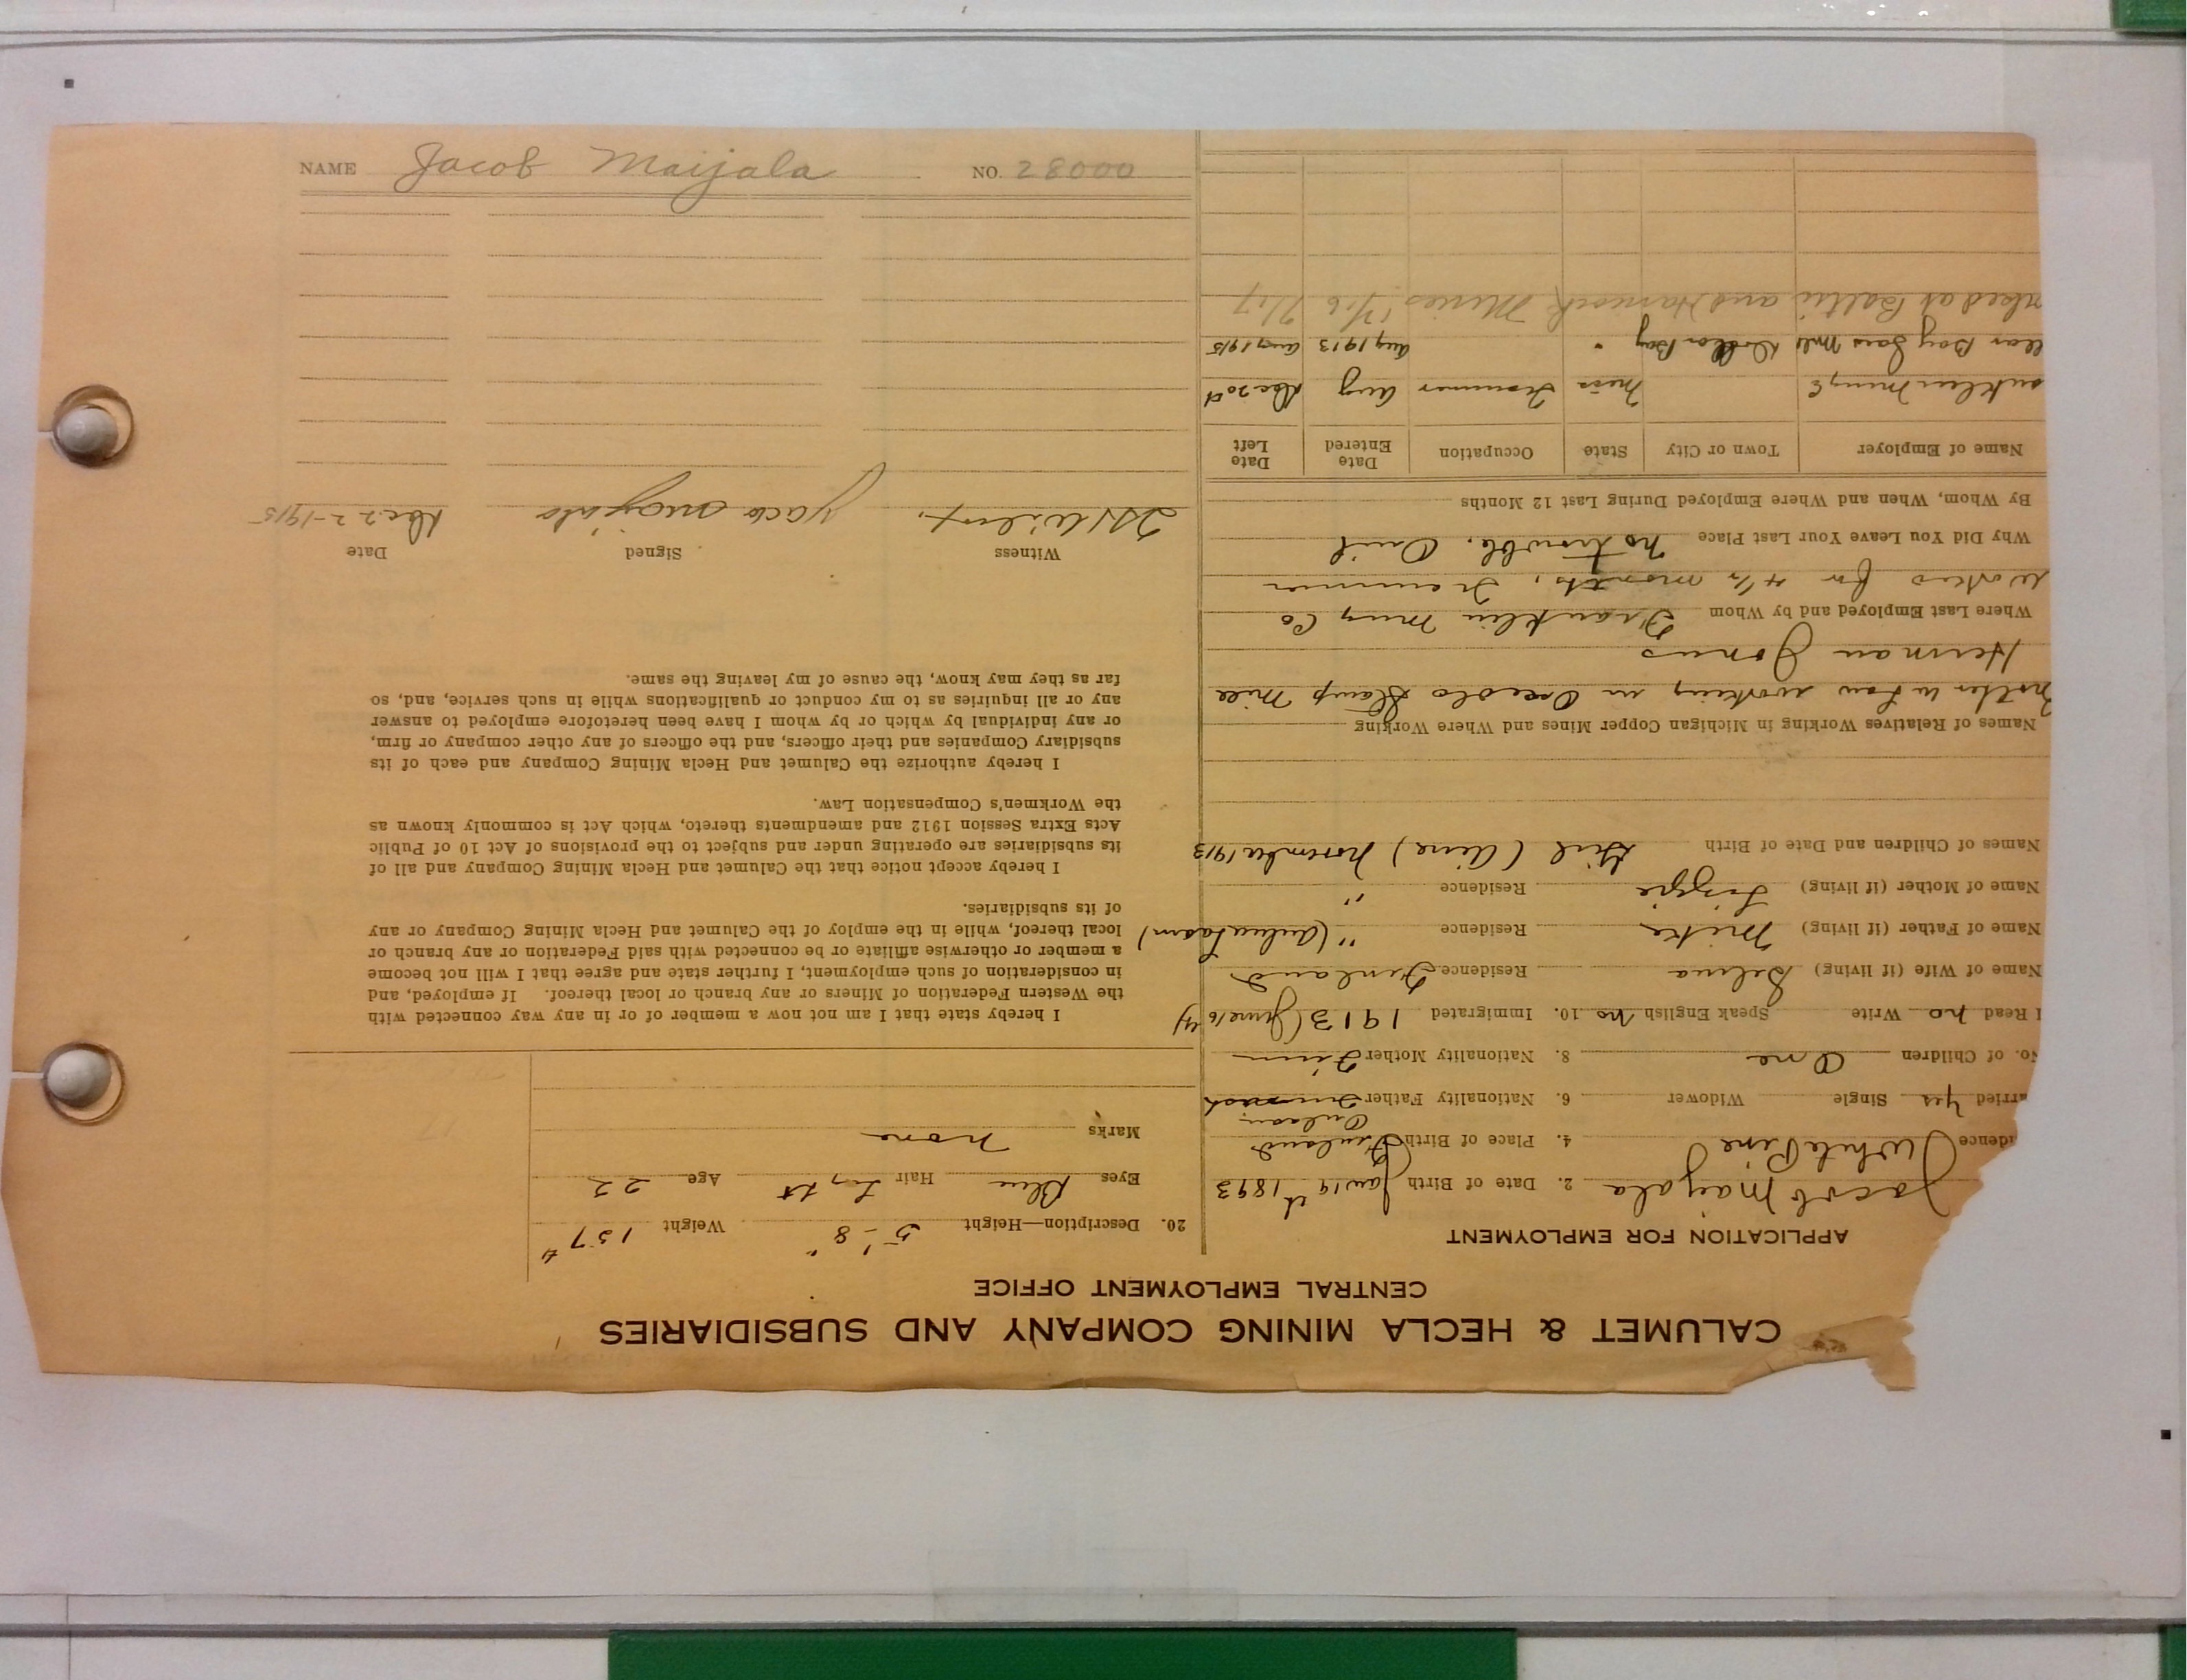 NAME Jacob Maijala NO. 28000
CALUMET & HECLA MINING COMPANY AND SUBSIDIARIES
CENTRAL EMPLOYMENT OFFICE
APPLICATION FOR EMPLOYMENT
Jacob Maijala 2. Date of Birth Jan 19th 1893
idence White Pine 4. Place of Birth Finland
arried Yes Single Widower 6. Nationality Father
No. of Children One 8. Nationality Mother Finn
d Read no Write Speak English No 10. Immigrated 1913 (June 16
Name of Wife (if living) Selma Residence Finland
Name of Father (if living) Residence "
Name of Mother (if living) Residence "
Names of Children and Date of Birth Girl (Aine) November 1913
Names of Relatives Working in Michigan Copper Mines and Where Working
Brother in Law working in Osceola Stamp Mill
Herman Jonus
Where Last Employed and by Whom Franklin Mung Co
Worked for 4½ months, Trammer
Why Did You Leave Your Last Place No trouble. Quit
By Whom, When and Where Employed During Last 12 Months
Name of Employer Town or City State Occupation Date Entered Date Left
anklin Mung C Mich Trammer Aug Dec 20th
llar Bay Saw Mill Dollar Bay " Aug 1913 Aug 1915
rked at Baltic and Hancock Mines 1/16 7/17
20. Description—Height 5'-8" Weight 157#
Eyes Blue Hair Light Age 22
Marks None
I hereby state that I am not now a member of or in any way connected with
the Western Federation of Miners or any branch or local thereof. If employed, and
in consideration of such employment, I further state and agree that I will not become
a member or otherwise affiliate or be connected with said Federation or any branch or
local thereof, while in the employ of the Calumet and Hecla Mining Company or any
of its subsidiaries.
I hereby accept notice that the Calumet and Hecla Mining Company and all of
its subsidiaries are operating under and subject to the provisions of Act 10 of Public
Acts Extra Session 1912 and amendments thereto, which Act is commonly known as
the Workmen's Compensation Law.
I hereby authorize the Calumet and Hecla Mining Company and each of its
subsidiary Companies and their officers, and the officers of any other company or firm,
or any individual by which or by whom I have been heretofore employed to answer
any or all inquiries as to my conduct or qualifications while in such service, and, so
far as they may know, the cause of my leaving the same.
Witness Signed Date
Dec 22-1915